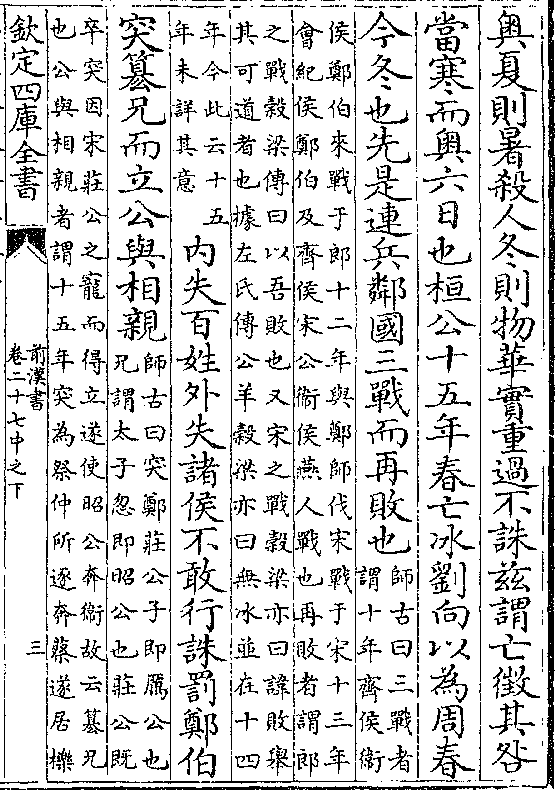 奥夏則暑殺人冬則物華實重過不誅兹謂亡徴其咎
當寒而奥六日也桓公十五年春亡冰劉向以為周春
今冬也先是連兵鄰國三戰而再敗也
師古曰三戰者
謂十年齊侯衛
侯鄭伯來戰于郎十二年與鄭師伐宋戰于宋十三年
會紀侯鄭伯及齊侯宋公衛侯燕人戰也再敗者謂郎
之戰榖梁傳曰以吾敗也又宋之戰榖梁亦曰諱敗舉
其可道者也據左氏傳公羊榖梁亦曰無冰並在十四
年今此云十五
年未詳其意
内失百姓外失諸侯不敢行誅罰鄭伯
突簒兄而立公與相親
師古曰突鄭莊公子即厲公也
兄謂太子忽即昭公也莊公既
卒突因宋莊公之寵而得立遂使昭公奔衛故云簒兄
也公與相親者謂十五年突為祭仲所逐奔蔡遂居櫟
欽定四庫全書
前漢書
卷二十七中之下
三